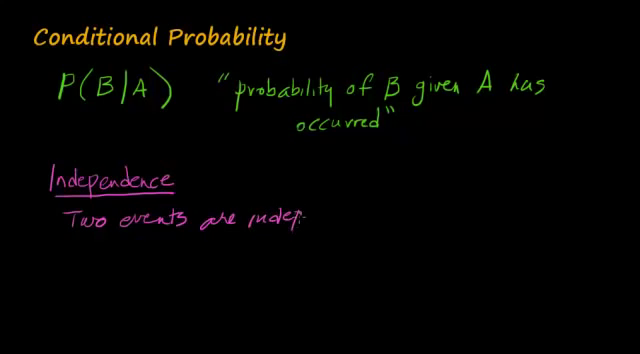 Conditional Probability
P(B|A) "probability of B given A has
occurred"
Independence
Two events are indep